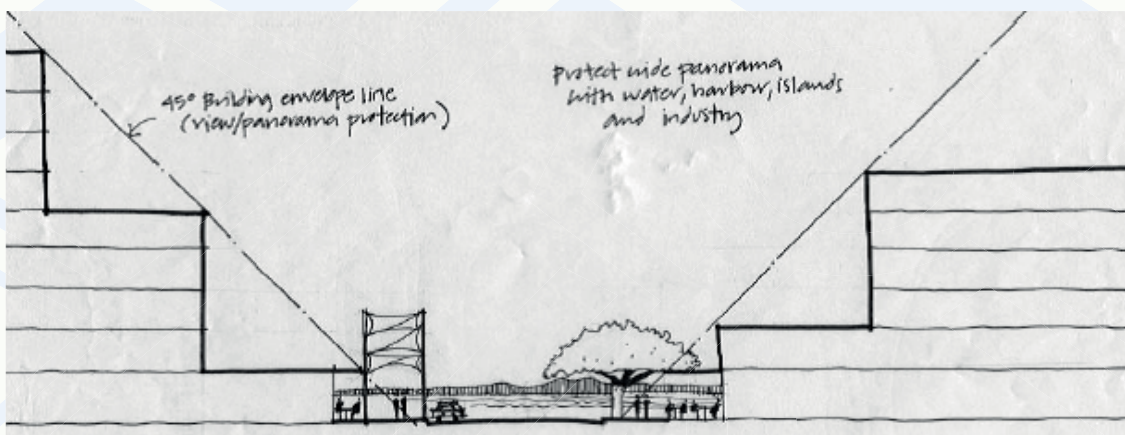 45° Building envelope line
(view/panorama protection)
Protect wide panorama
with water, harbour, islands
and industry